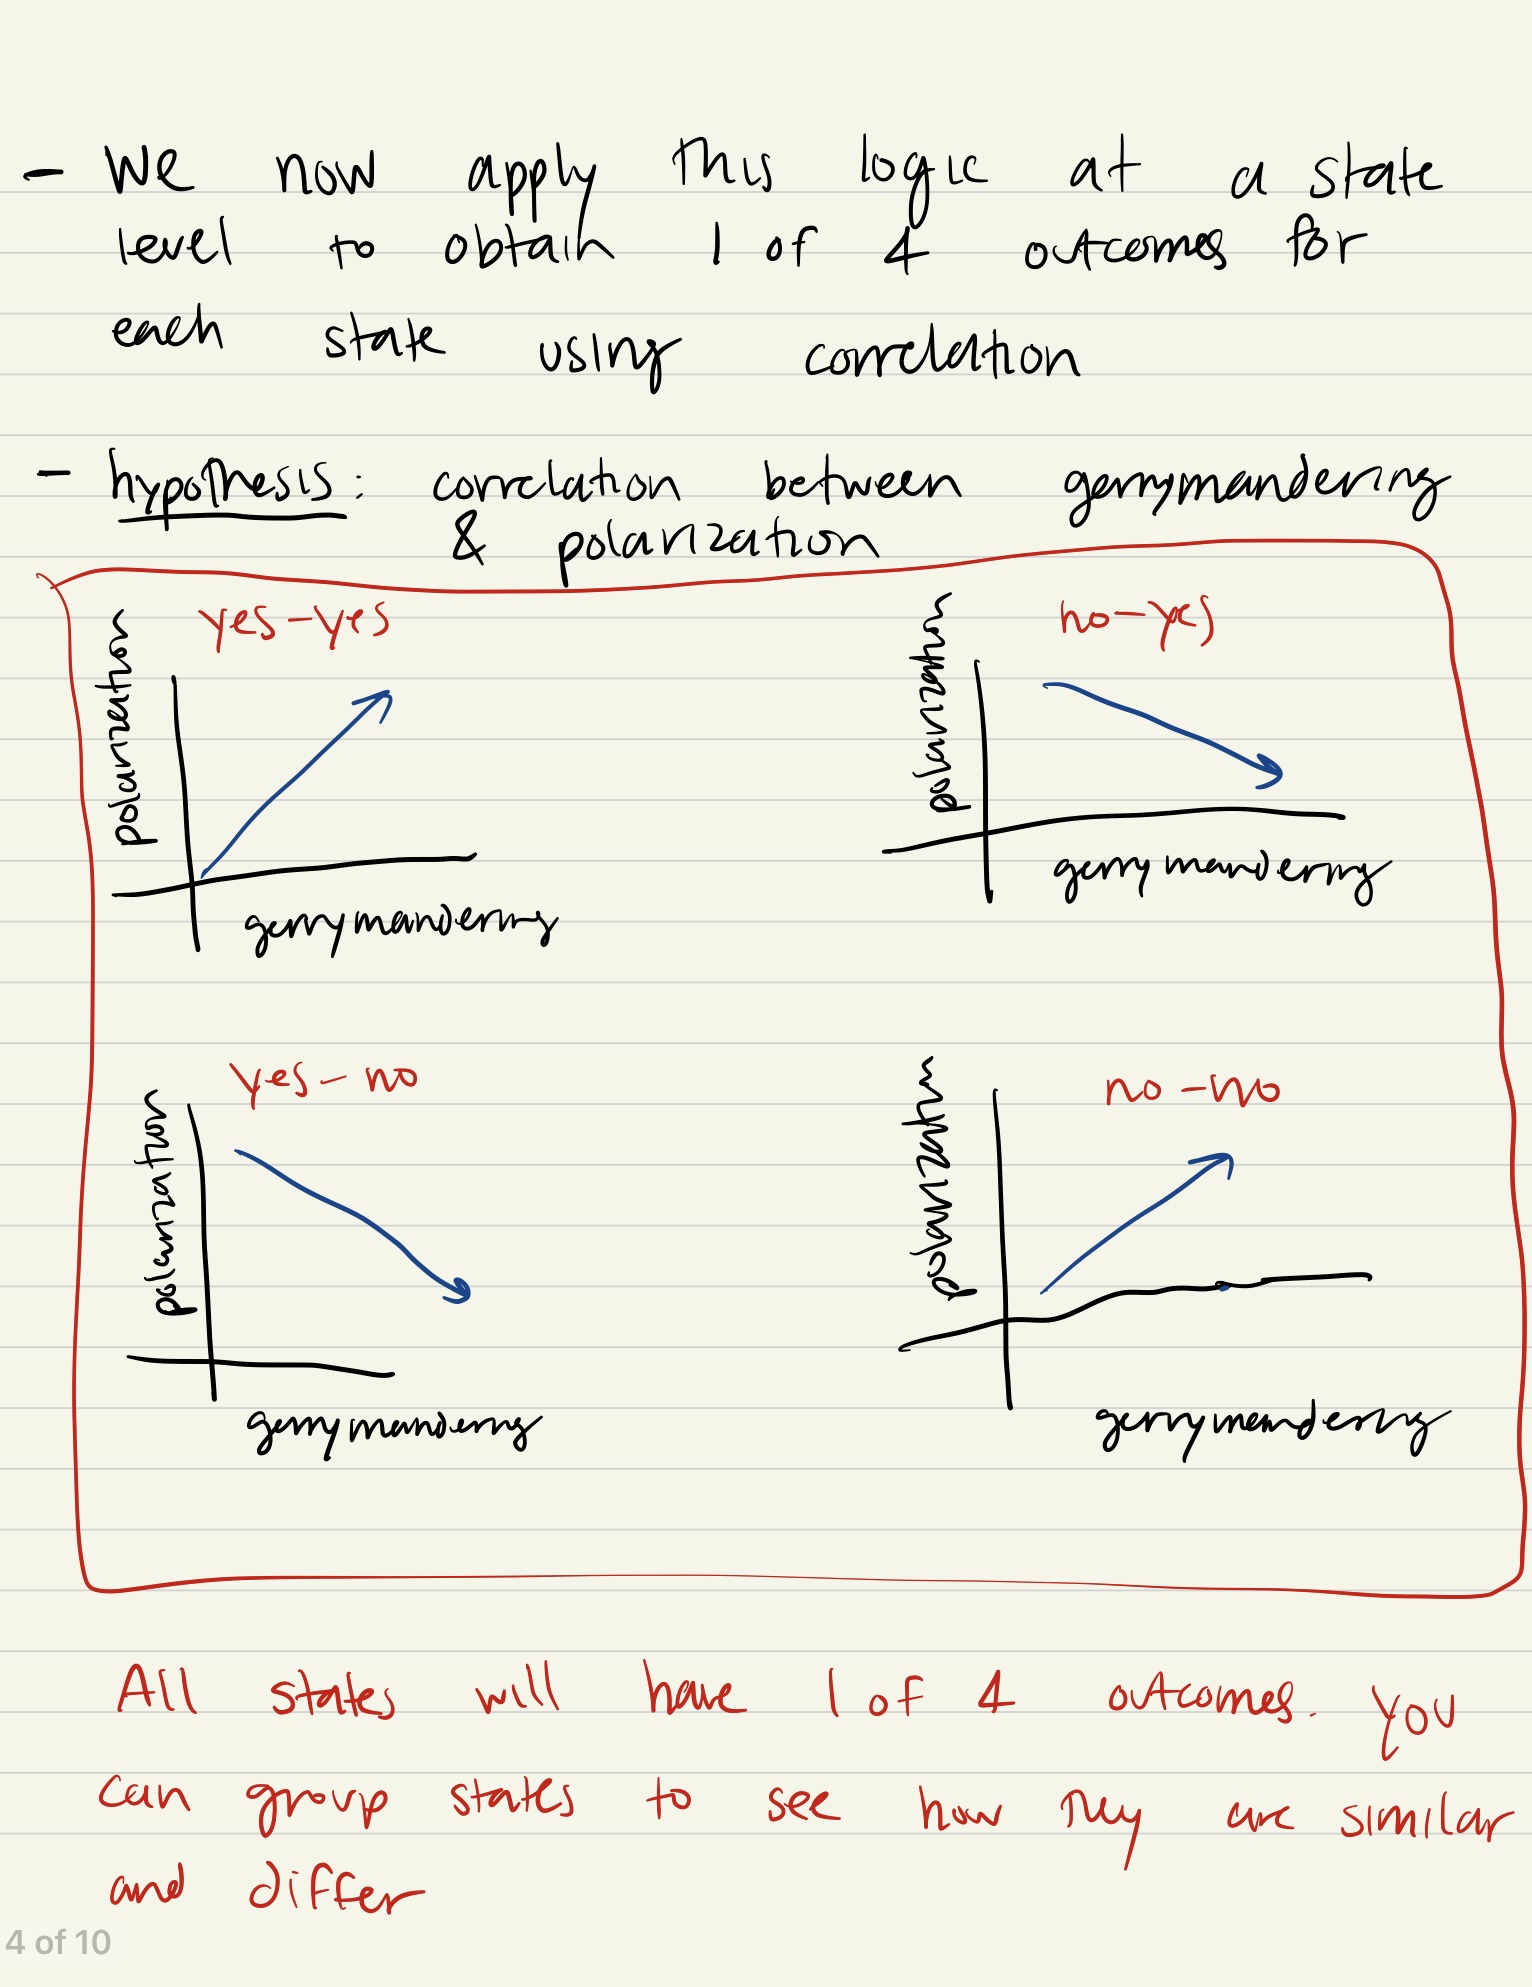 - We now apply this logic at a state
level to obtain 1 of 4 outcomes for
each state using correlation
- hypothesis: correlation between gerrymandering
& polarization
yes-yes
polarization
gerrymandering
no-yes
polarization
gerrymandering
yes-no
polarization
gerrymandering
no-no
polarization
gerrymandering
All states will have 1 of 4 outcomes. you
can group states to see how they are similar
and differ
4 of 10